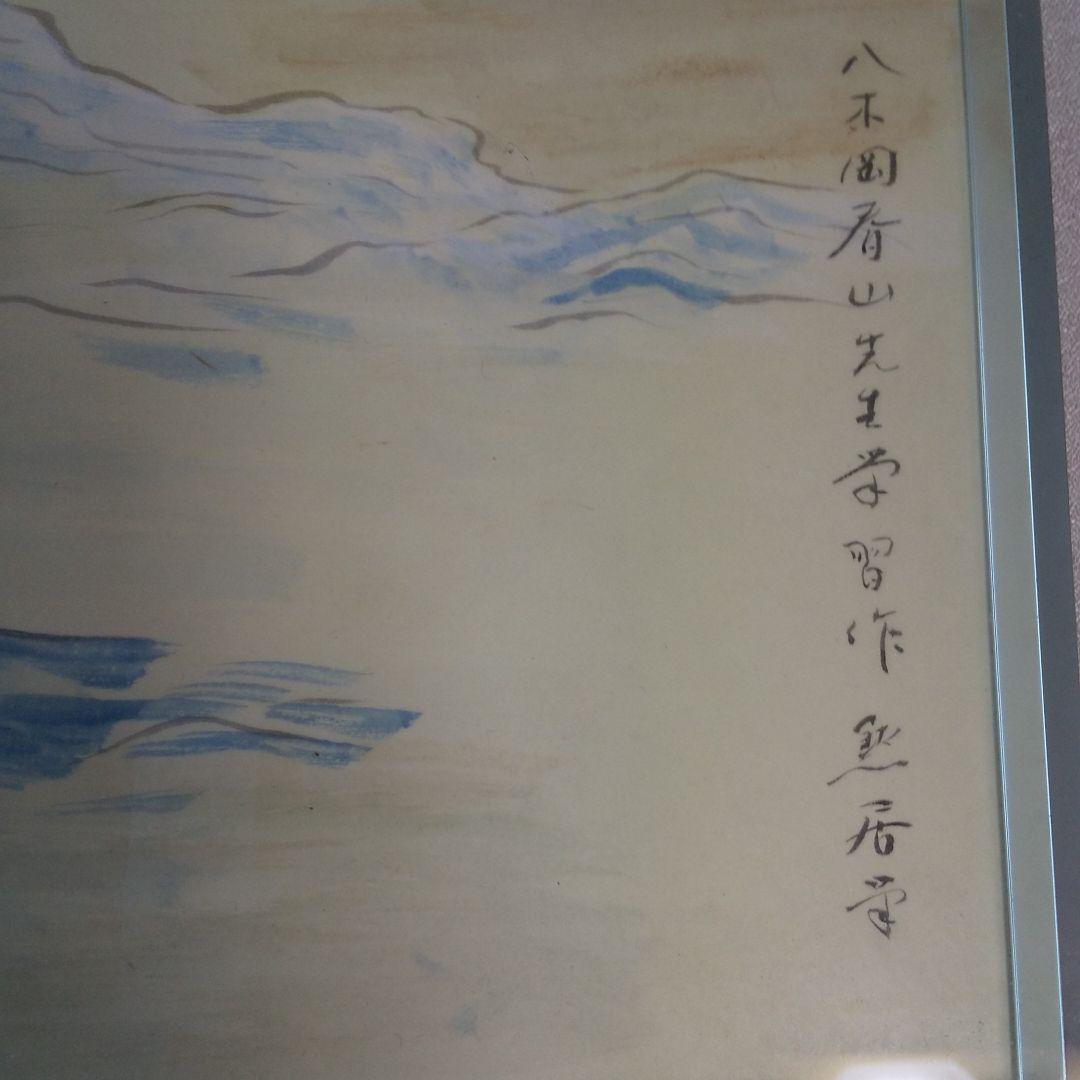 八木岡春山先生学習作 然居学